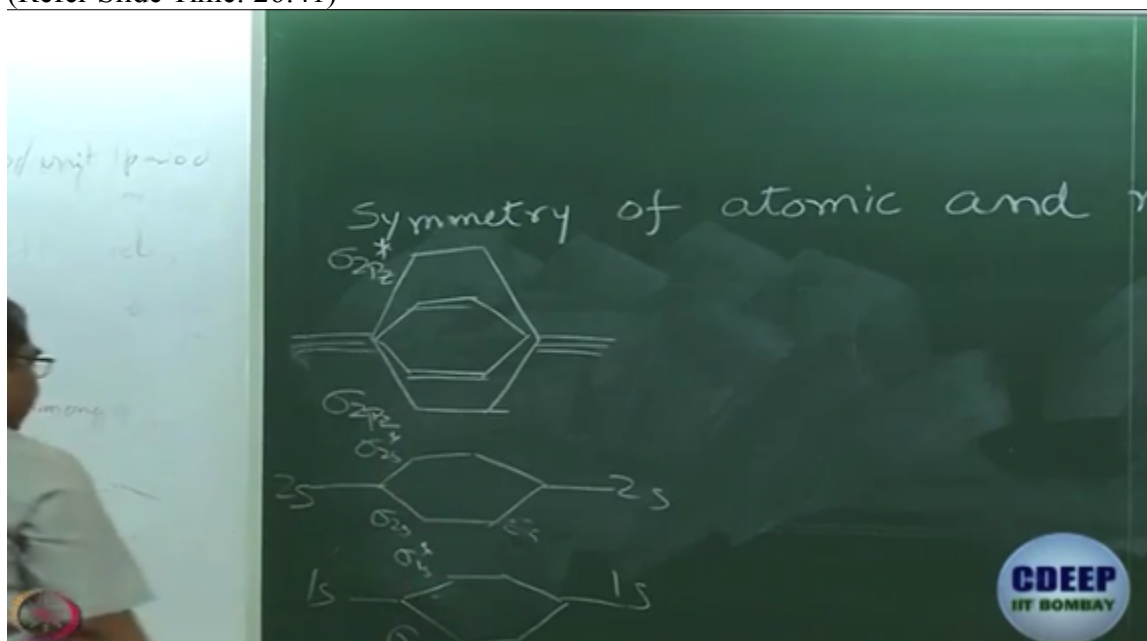 (Refer Slide Time: 20:41)
unit period
Symmetry of atomic and
σ2Pz*
σ2Pz
σ2s*
2s
2s
σ2s
σ1s*
1s
1s
σ
among
CDEEP
IIT BOMBAY